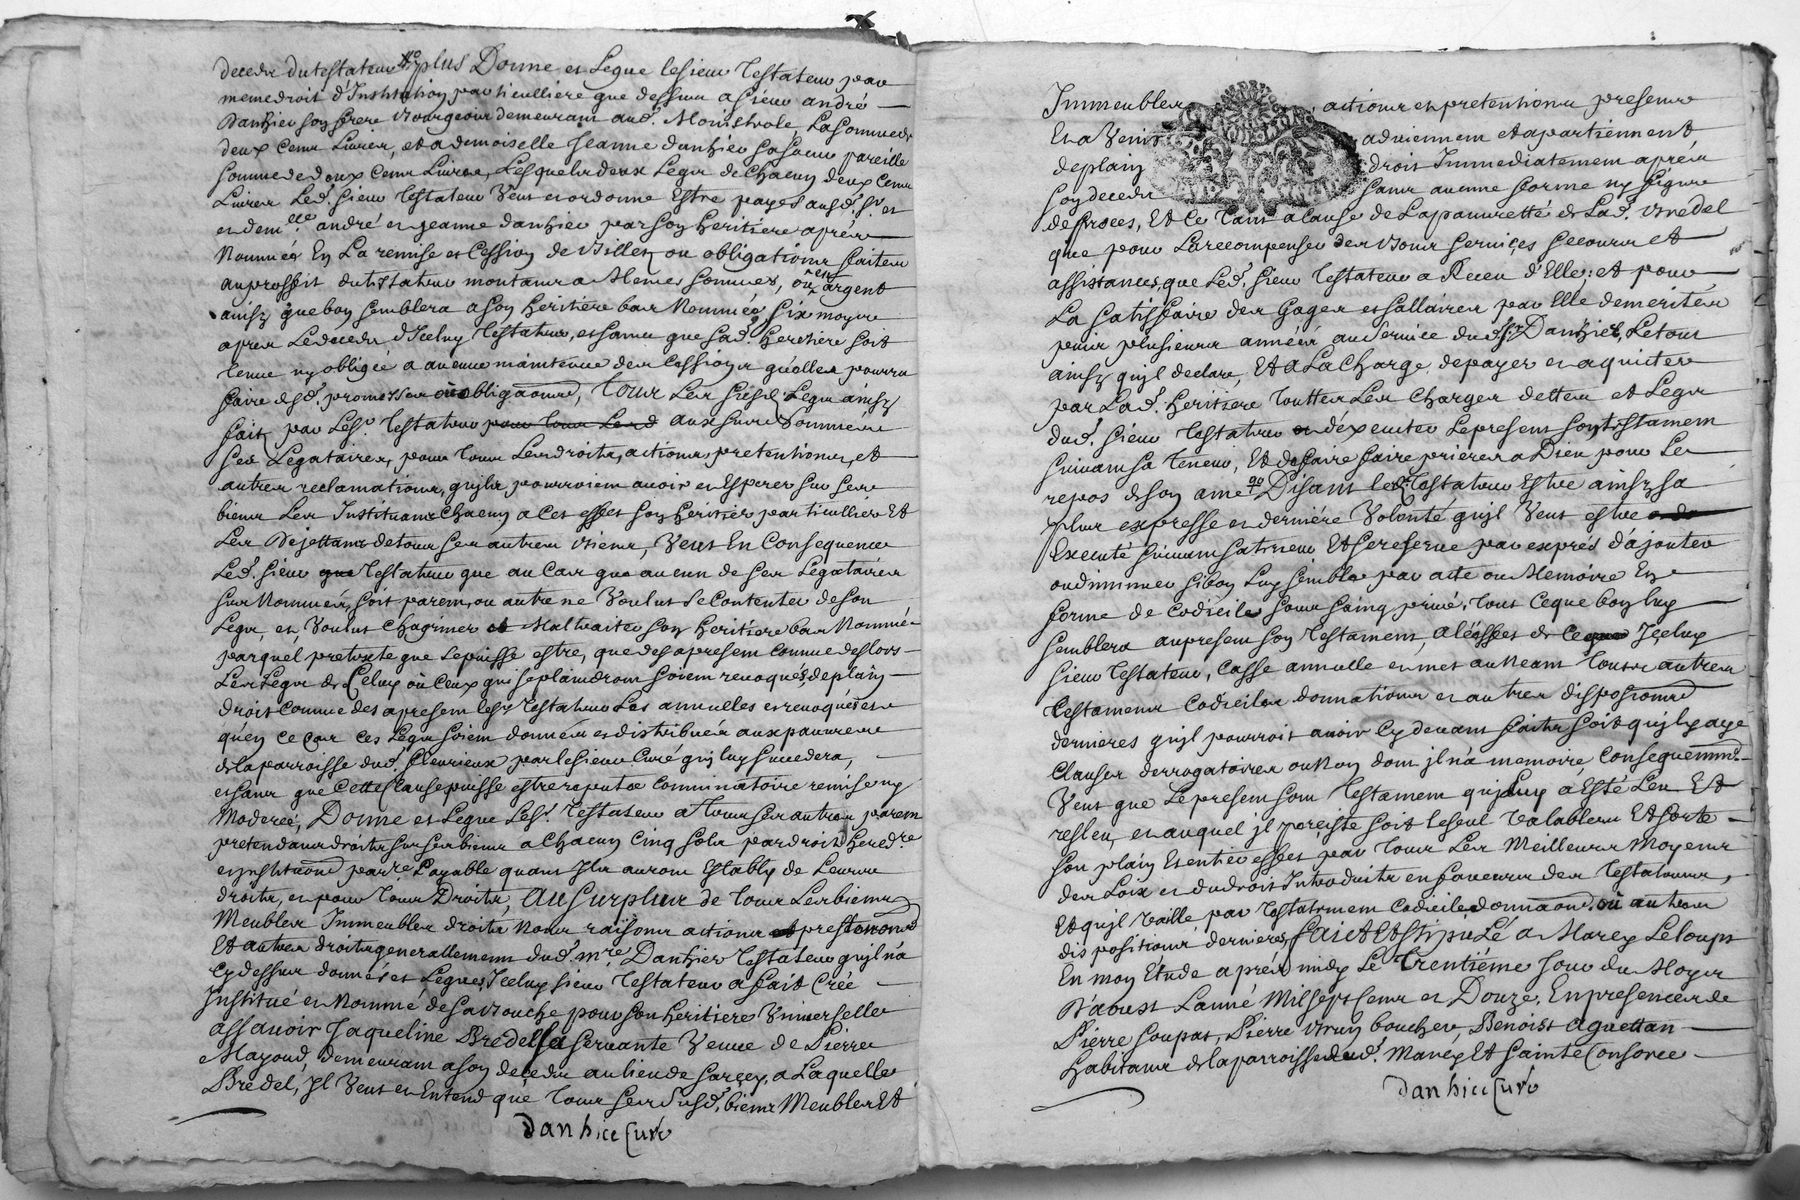 deceds du testateur plus Donne et Legue le sieur Testateur par
meme droit d'Institution particulliere que dessus a sieur andré
Danhier son frere Bourgeois demeurant aud. Monistrole, La somme de
deux cens Livres, et a demoiselle Jeanne danhier sa soeur pareille
somme de deux cens Livres, Lesquels deux Legs de chacun deux cens
Livres Led. sieur Testateur Veut et ordonne Estre payes ausd. sr. et
et dem.lle andré et jeanne danhier par son heritiere apres
Nommée En La remise et Cession de Billets ou obligations faites
au proffit du testateur montants a Memes sommes, ou en argent
ainsy que bon semblera a son heritiere bas Nommée, six moys
apres Le deceds d'Iceluy Testateur, et sans que sad. heritiere soit
tenue ny obligée a aucune maintenue des Cessions qu'elle pourra
faire desd. promesses ou obligaons, Tous Les susd. Legs ainsy
faits par Led. sr. Testateur aux sus Nommés
ses Legataires, pour tous Les droits, actions, pretentions, et
autres reclamations, qu'ils pourroient avoir et Esperer sur ses
biens Les Instituant Chacun a Cet effet son heritier particullier Et
Les Dejettant de tous ses autres biens, Veut En Consequence
Led. sieur Testateur que au Cas que aucun de ses Legataires
sus Nommés, soit parent, ou autre ne Voulut se Contenter de son
Legs, et Voulut Chagriner et Maltraiter son heritiere bas Nommée
par quel pretexte que Le puisse estre, que des a present comme deslors
Les Legs de Celuy ou Ceux qui se plaindront soient revoqués, de plain
droit Comme des a present led. sr. Testateur Les annulles et revoques et
qu'en ce Cas ces Legs soient donnés et distribués aux pauvres
de la parroisse dud. fleurieux par le sieur Curé qui luy succedera,
et sans que Cette Clause puisse estre reputée Comminatoire remise ny
Moderée, Donne et Legue Led. sr. Testateur a tous ses autres parens
pretendants droits sur ses biens a chacun Cinq sols par droit hered.re
et institution parr.e Payable quant Ils auront Estably de Leurs
droits, et pour tous Droits, Au surplus de tous Les biens
Meubles Immeubles droits Noms raisons actions pretentions
Et autres droits generallement dud. m.re Danhier Testateur qu'il n'a
Cy dessus donnés et Legues, Iceluy sieur Testateur a fait Créé
Institué et Nommé de sa bouche pour son heritiere Universelle
assavoir Jaqueline Bredel sa servante Veuve de Pierre
Mayoud, demeurant a son deceds au lieu de sarcey, a Laquelle
Bredel, Il Veut et Entend que tous ses susd. biens Meubles Et
Danhier Curé
Immeubles actions et pretentions presens
Et a Venir adviennent et apartiennent
de plain droit Immediatement apres
son deceds sans aucune forme ny figure
de proces, Et Ce tant a Cause de La pauvretté de Lad. Bredel
que pour La recompenser des bons services secours et
assistances, que Led. sieur Testateur a Receu d'Elle, et pour
La satisfaire des Gages et sallaires par Elle demerités
puis plusieurs années au service dud. sr. Danhier, Le tout
ainsy qu'il declare, Et a La Charge de payer et aquiter
par Lad. heritiere touttes Les Charges dettes et Legs
dud. sieur Testateur d'executer Le present son testament
suivant sa Teneur, Et de faire faire prieres a Dieu pour Le
repos de son ame Disant led. sr. Testateur Estre ainsy sa
plus expresse et derniere Volonté qu'il Veut estre
Executé suivant sa teneur Et se reserve par exprés d'ajouter
ou diminuer si bon Luy semble par acte ou Memoire En
forme de codicile sous saing privé, tout Ce que bon luy
semblera au present son Testament, a l'effet de Ce Iceluy
sieur Testateur, Casse annulle et met au Neant tous autres
testaments Codiciles donnations et autres dispositions
dernieres qu'il pourroit avoir Cy devant faits soit qu'il y aye
Clauses derrogatoires ou Non dont il n'a memoire, Consequemment
Veut que Le present son Testament qui luy a Esté Leu Et
resleu, et auquel il perciste soit le seul Valable Et sorte
son plain Et entier effet par tous Les Meilleurs Moyens
des Loix et du droit Introduits en faveur des Testateurs,
Et qu'il Vaille par testament Codicile donnaon. ou autres
dispositions dernieres, fait Et stipulé a Marcy Le Loup
En mon Etude aprés midy Le Trentieme jour du Moys
D'aoust L'anné Mil sept cens et Douze, En presences de
Pierre Coupat, Pierre brun boucher, Benoist aguettan
habitans de la parroisse dud. Marcy Et sainte Consorce
Danhier Curé